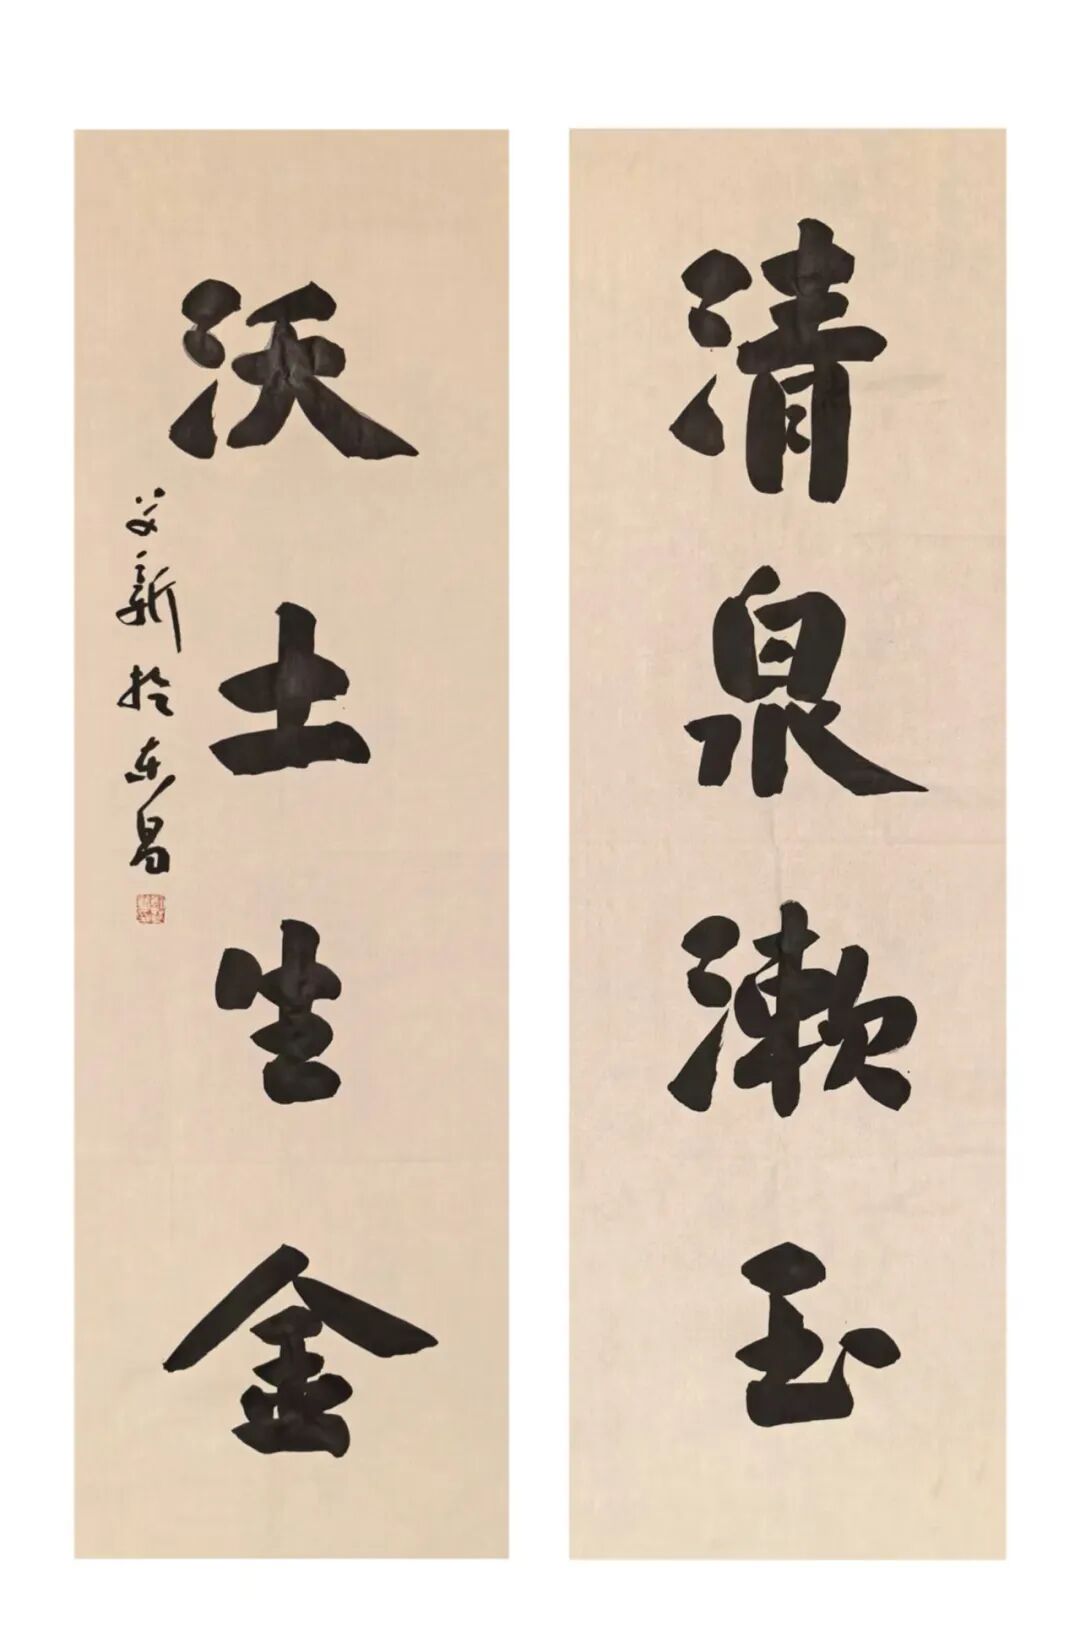 清泉漱玉
沃土生金
艾新於东昌